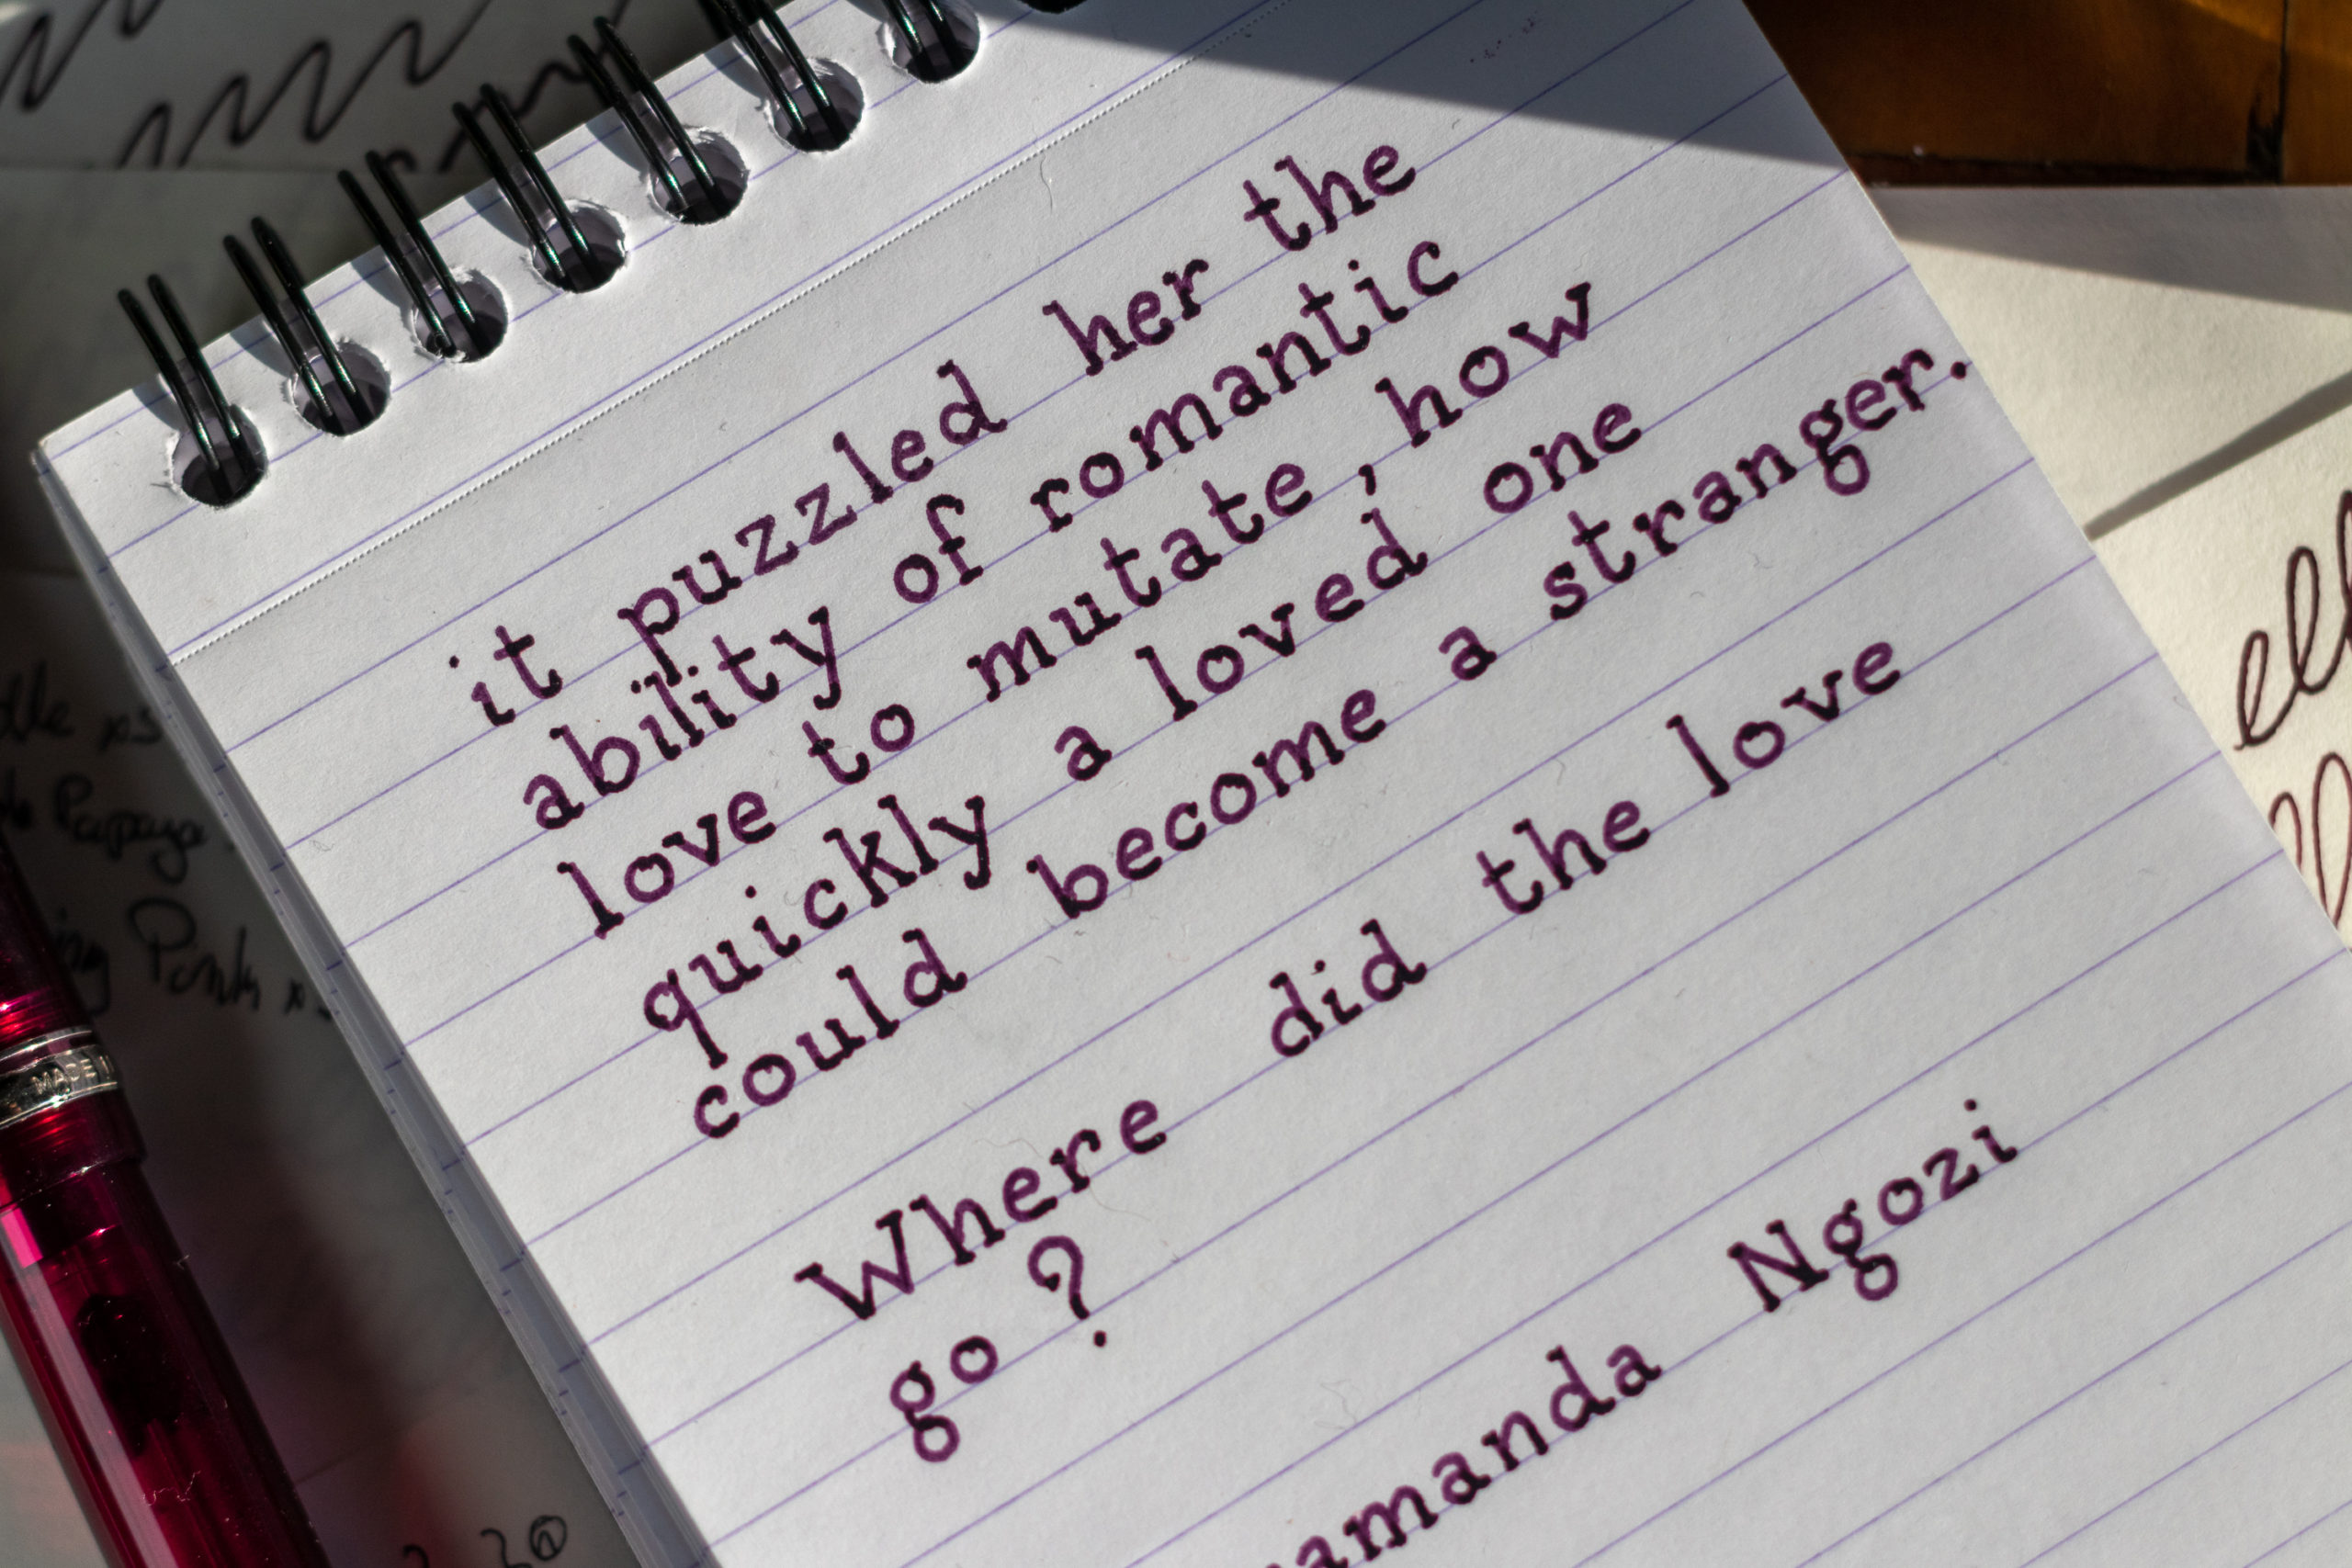 it puzzled her the
ability of romantic
love to mutate, how
quickly a loved one
could become a stranger.
Where did the love
go?
amanda Ngozi
Papaya
Pink
MADE I